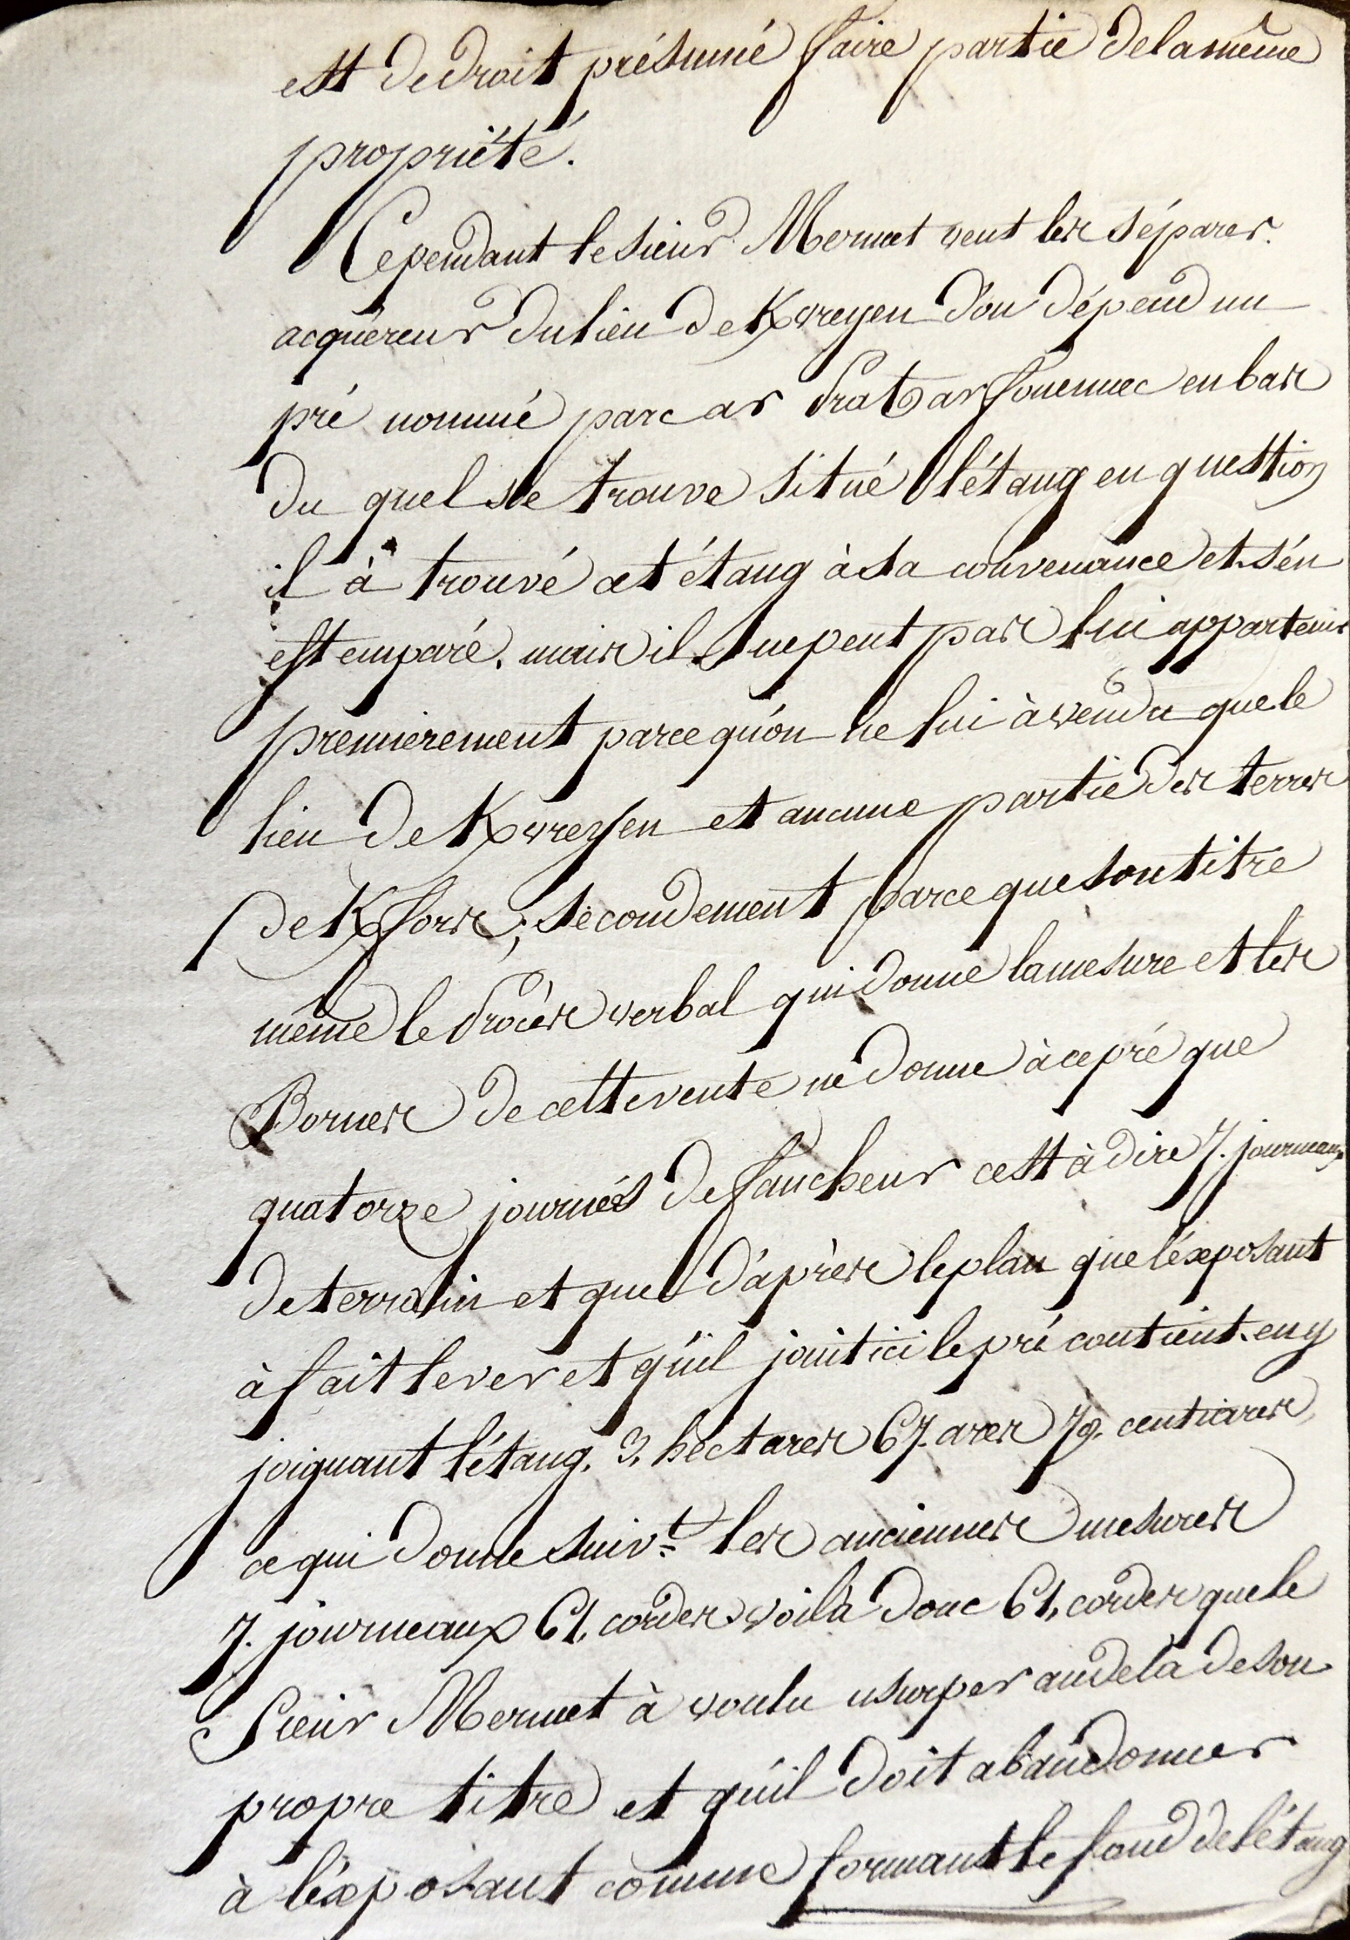 est de droit présumé faire partie de la même
propriété.
Cependant le sieur Mermet veut les séparer.
acquéreur du lieu de Kvreyen d'ou dépend un
pré nommé parc ar Prat ar fouennec en bas
du quel se trouve situé l'étang en question
il à trouvé cet étang à sa convenance et s'én
est emparé. mais il ne peut pas lui appartenir
premierement parce qu'on ne lui à vendu que le
lieu de Kvreyen et aucune partie des terres
de Kfors; secondement parce que son titre
même le Procès verbal qui donne la mesure et les
Bornes de cette vente ne donne à ce pré que
quatorze journées de faucheur cest à dire 7. journeaux
de terrain et que d'après le plan que l'éxposant
à fait lever et qu'il joint ici le pré contient. en y
joignant l'étang. 3. hectares 67. ares 79. centiares
ce qui donne suivt. les anciennes mesures
7. journeaux 61. cordes voilà donc 61. cordes que le
Sieur Mermet à voulu usurper au dela de son
propre titre et qu'il doit abandonner
à l'éxposant comme formant le fond de l'étang